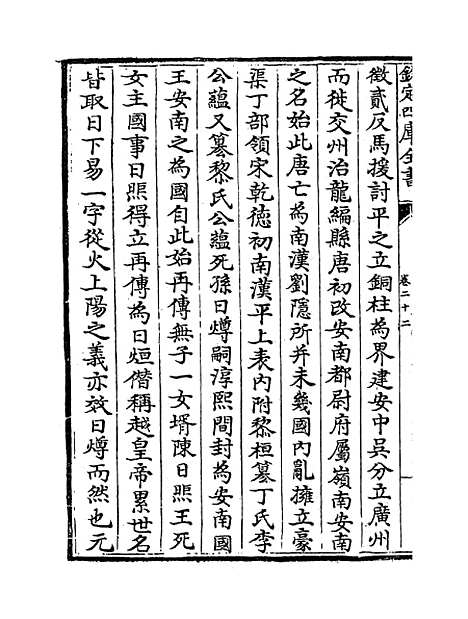 欽定四庫全書
卷二十二
徵貳反馬援討平之立銅柱為界建安中吳分立廣州
而徙交州治龍編縣唐初改安南都尉府屬嶺南安南
之名始此唐亡為南漢劉隱所并未幾國內亂擁立豪
渠丁部領宋乾德初南漢平上表內附黎桓簒丁氏李
公蘊又簒黎氏公蘊死孫日㷯嗣淳熙間封為安南國
王安南之為國自此始再傳無子一女婿陳日煚王死
女主國事日煚得立再傳為日烜僭稱越皇帝累世名
皆取日下易一字從火上陽之義亦效日㷯而然也元